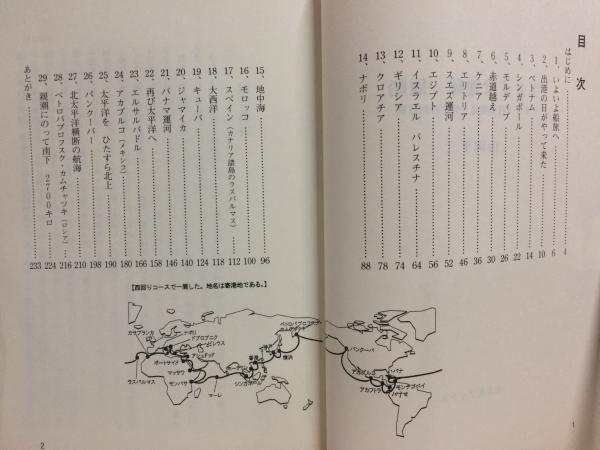 目次
はじめに……4
1、いよいよ船旅へ……6
2、出港の日がやって来た……10
3、ベトナム……14
4、シンガポール……22
5、モルディブ……26
6、赤道越え……30
7、ケニア……36
8、エリトリア……46
9、スエズ運河……52
10、エジプト……56
11、イスラエル　パレスチナ……64
12、ギリシア……74
13、クロアチア……78
14、ナポリ……88
15、地中海……96
16、モロッコ……100
17、スペイン（カナリア諸島のラスパルマス）……112
18、大西洋……118
19、キューバ……124
20、ジャマイカ……140
21、パナマ運河……146
22、再び太平洋へ……158
23、エルサルバドル……166
24、アカプルコ（メキシコ）……180
25、太平洋を　ひたすら北上……190
26、バンクーバー……198
27、北太平洋横断の航海……210
28、ペトロパブロフスク・カムチャツキ（ロシア）……216
29、親潮にのって南下　2700キロ……224
あとがき……233
【西回りコースで一周した。地名は寄港地である。】
カサブランカ
ナポリ
ドブロブニク
ピレウス
アシュドッド
ポートサイド
マッサワ
ラスパルマス
モンバサ
マーレ
シンガポール
神戸
横浜
バンクーバ
アカプルコ
アカフトラ
ハバナ
モンテゴベイ
パナマ
1
2